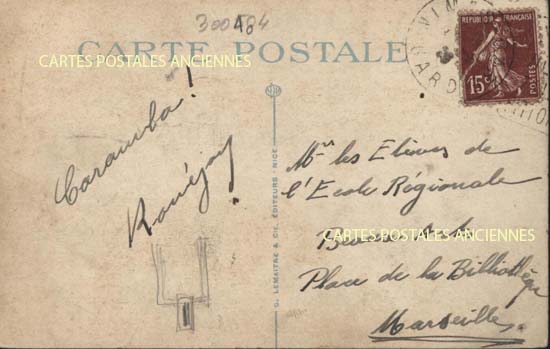 300484
CARTE POSTALE
CARTES POSTALES ANCIENNES
NIMES
GARD
REPUBLIQUE FRANÇAISE
15c
POSTES
Caramba!
G. LEMAITRE & CIE, ÉDITEURS - NICE
Mrs les Elèves de
l'Ecole Régionale
CARTES POSTALES ANCIENNES
Place de la Billiothèque
Marseille.